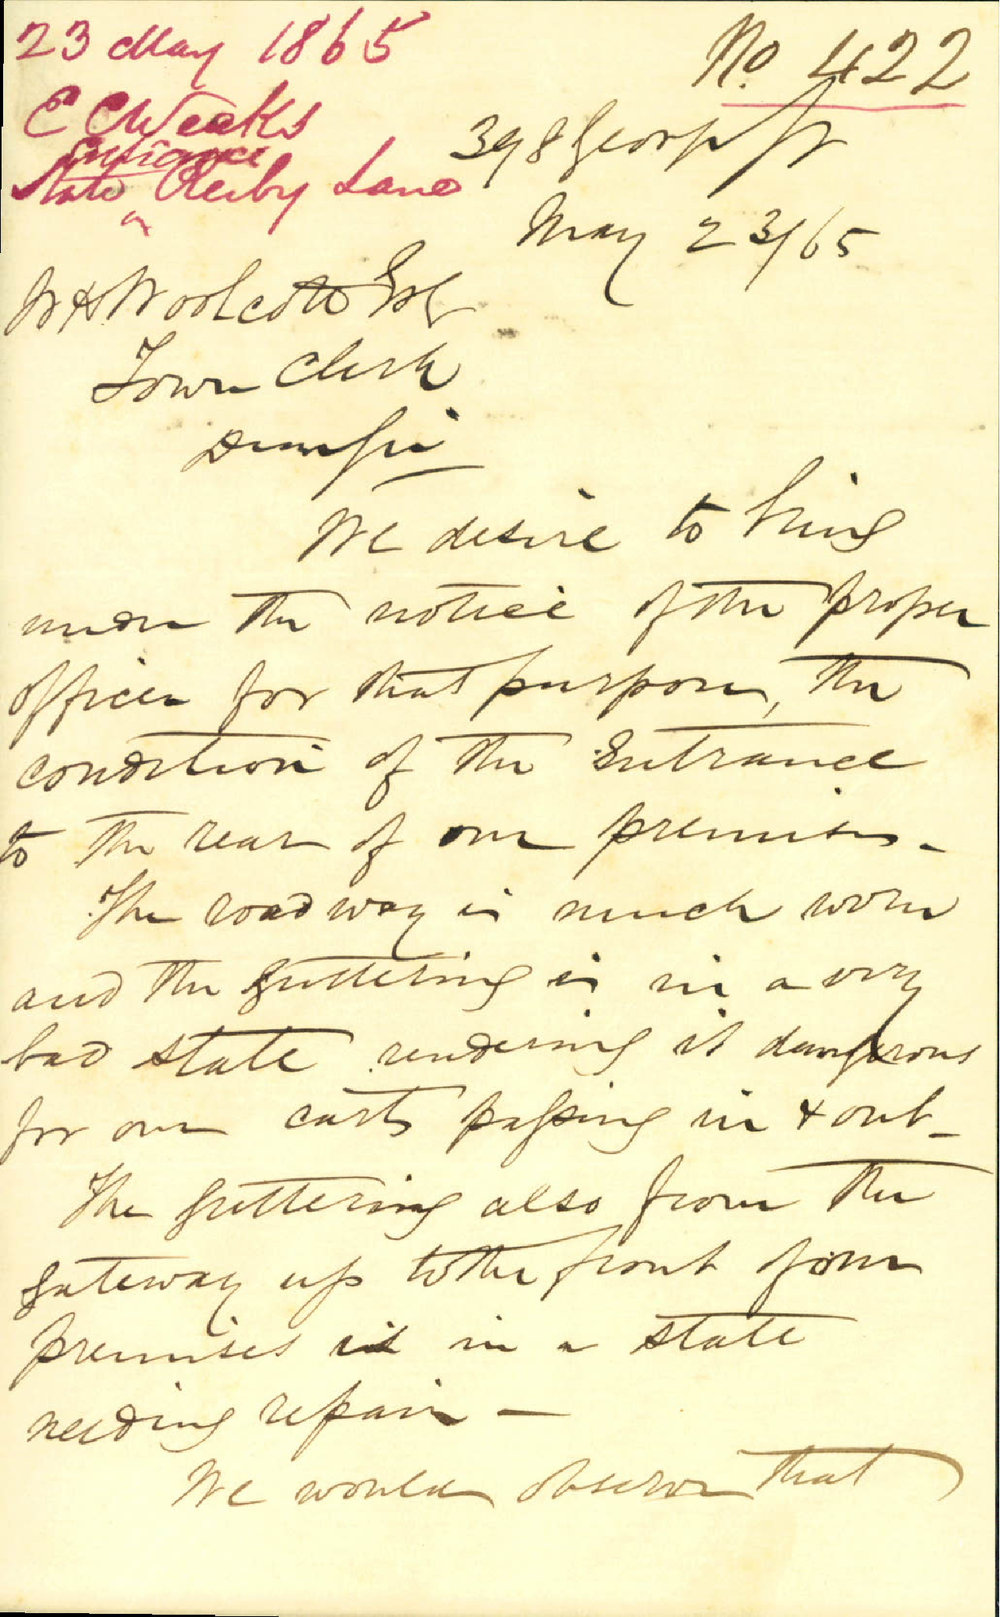 23 May 1865
E C Weekes
Entrance
State ^ Reiby Lane
No. 422
398 George St
May 23/65
W H Woolcott Esq
Town Clerk
Dear Sir
We desire to bring
under the notice of the proper
officer for that purpose, the
condition of the Entrance
to the rear of our premises -
The roadway is much worn
and the guttering is in a very
bad state rendering it dangerous
for our carts passing in & out -
The guttering also from the
gateway up to the front of our
premises is in a state
needing repair -
We would observe that